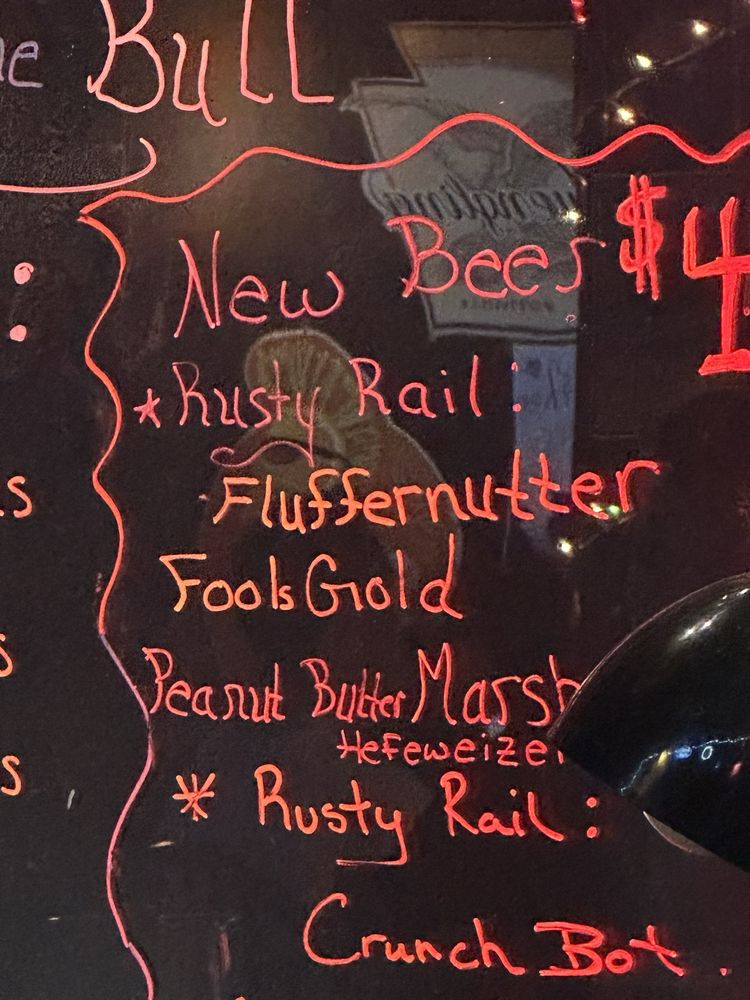 Bull
New Bees $4
*Rusty Rail:
Fluffernutter
Fools Gold
Peanut Butter Marsh
Hefeweizer
* Rusty Rail:
Crunch Bot.